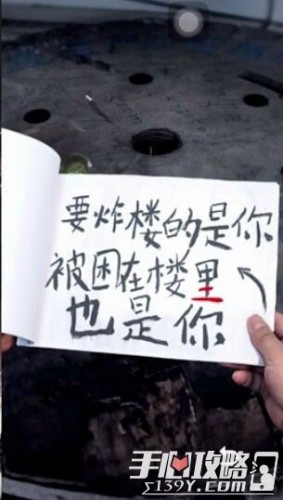 要炸楼的是你
被困在楼里
也是你
手心攻略
s139Y.com